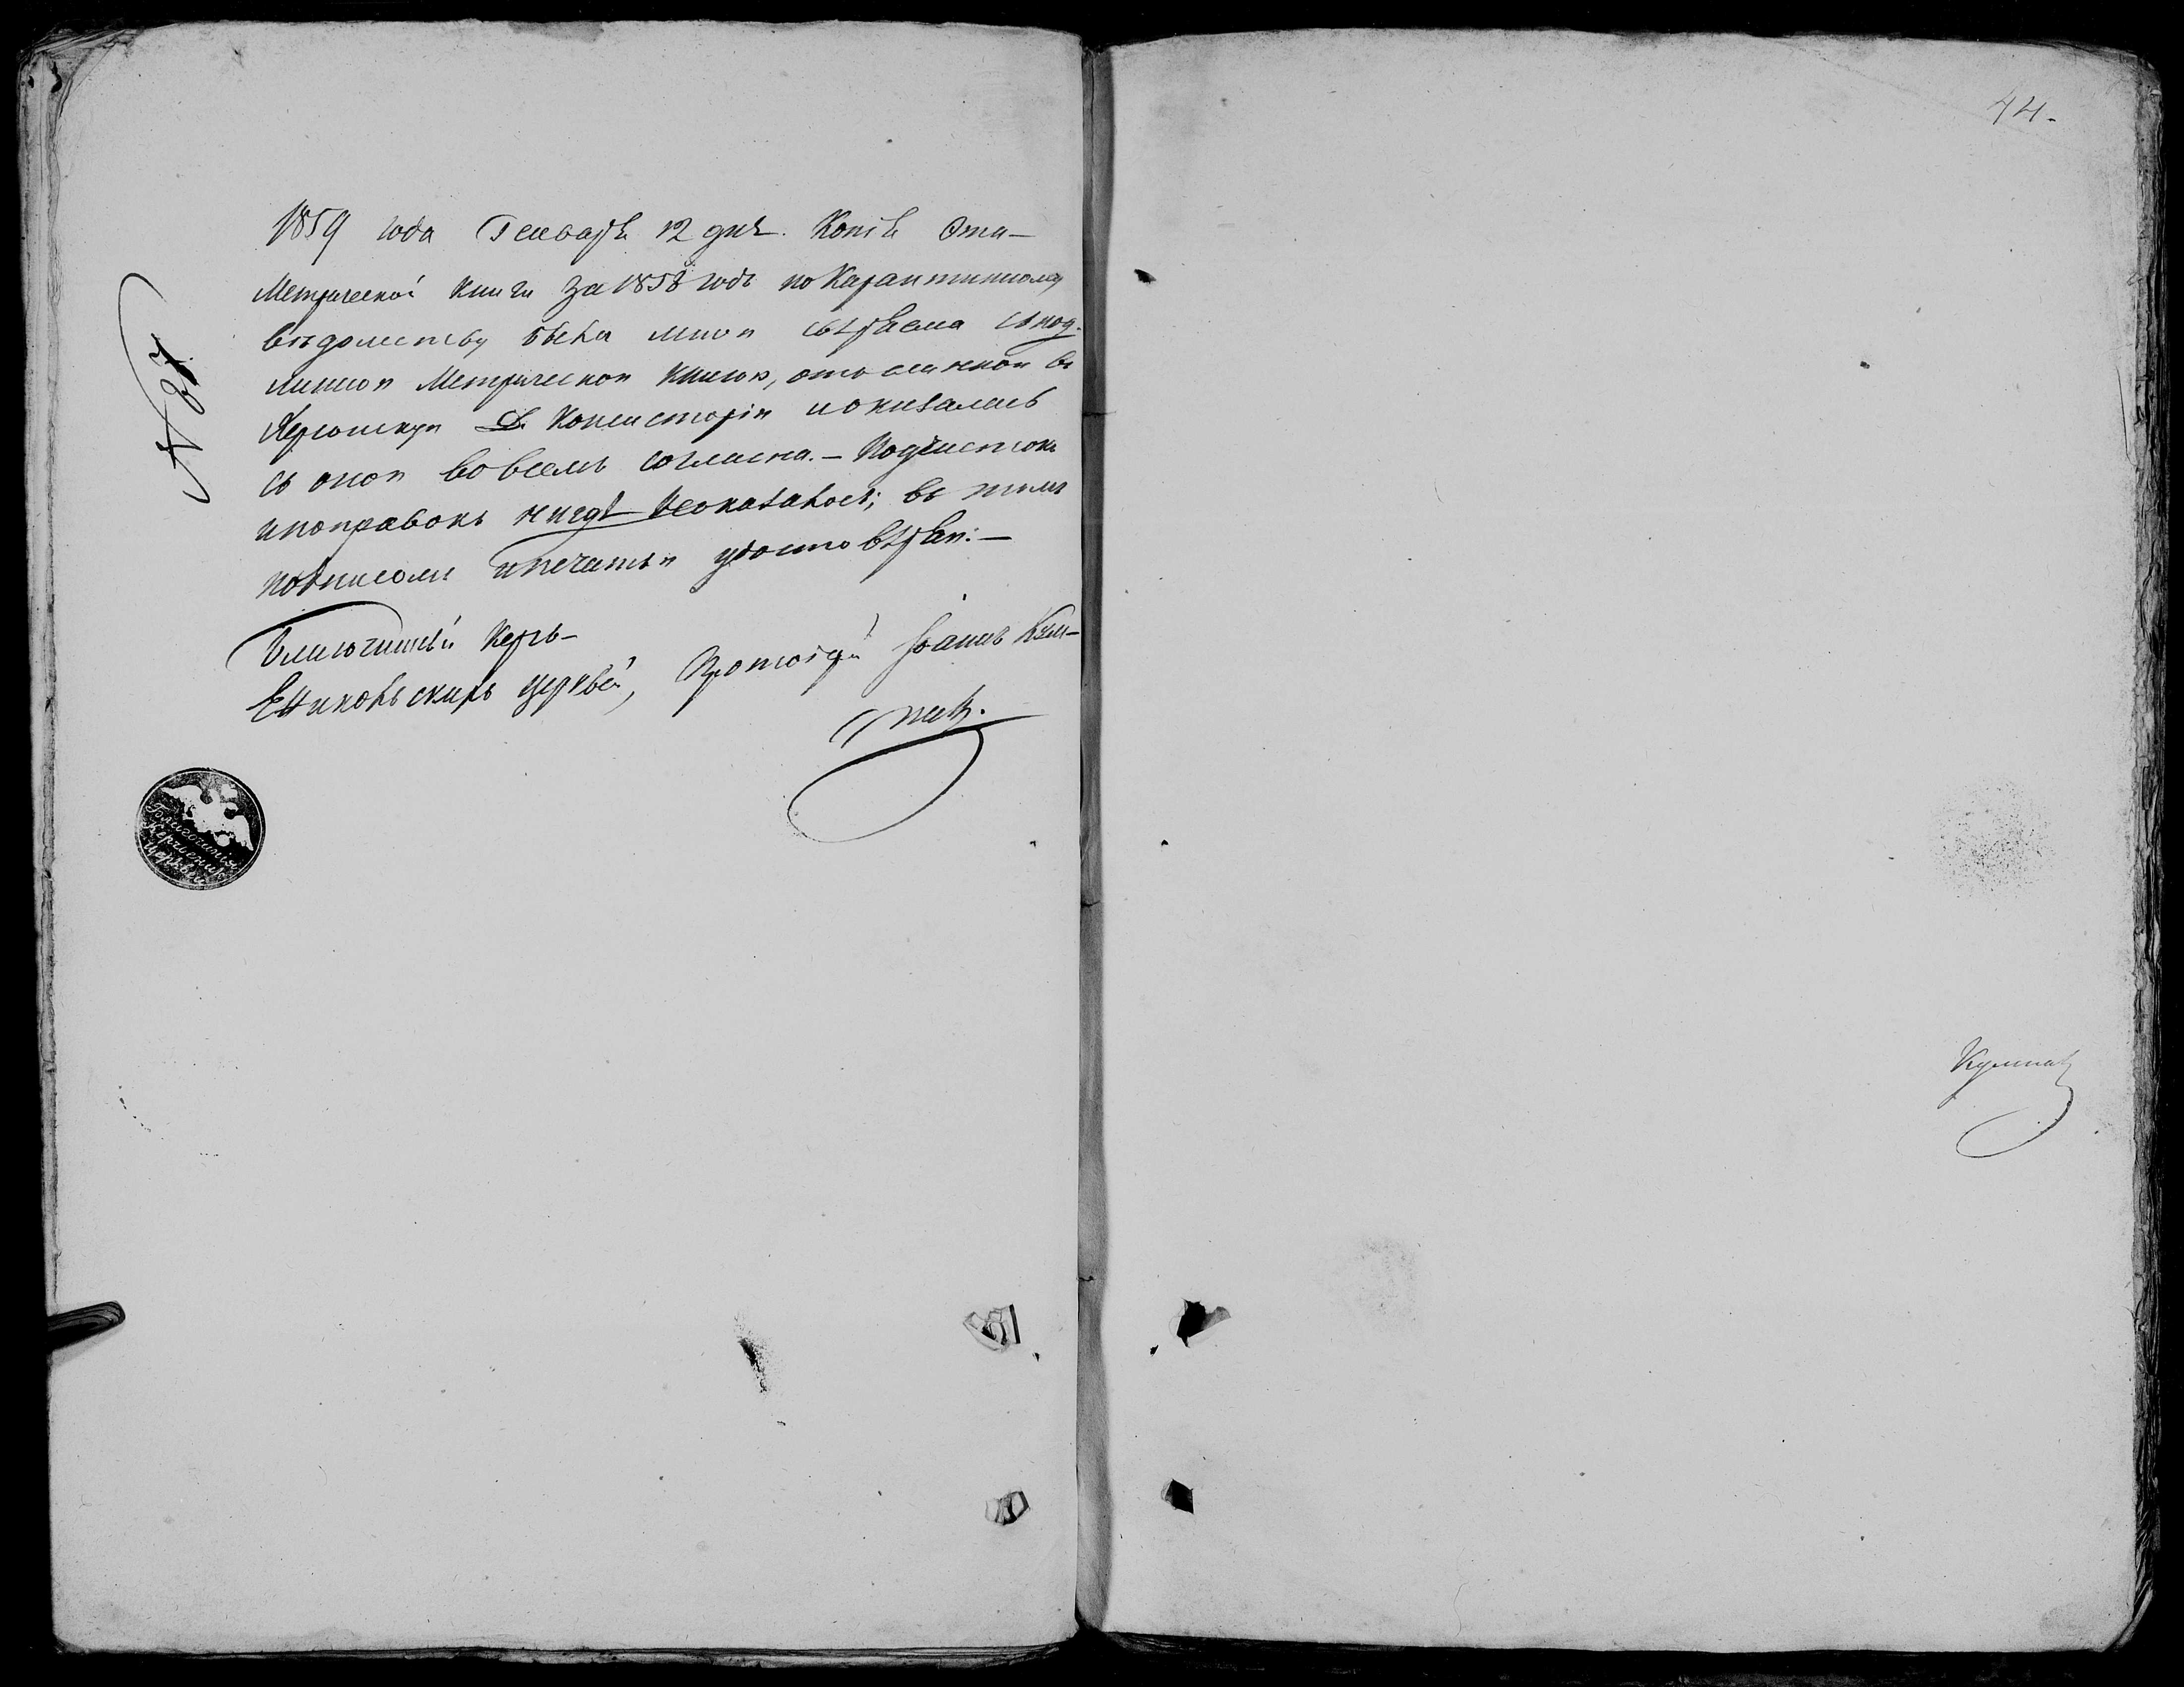 44.
№ 87.
1859 года Генваря 12 дня. Копія Эта
Метрической книги За 1858 годъ по Карантинному
вѣдомству была мною свѣряема съ под-
линною Метрическою книгою, отосланною въ
Херсонскую Д. Консисторію и оказалась
съ оною во всемъ согласна. — Подчистокъ
и поправокъ нигдѣ Неоказалось; въ томъ
подписомъ и печатью удостовѣряю: —
Благочинный Керчь-
Еникольскихъ церквей, Протоіерей Іоаннъ Кум-
пан.
Благочинія
Керченских
Церквей